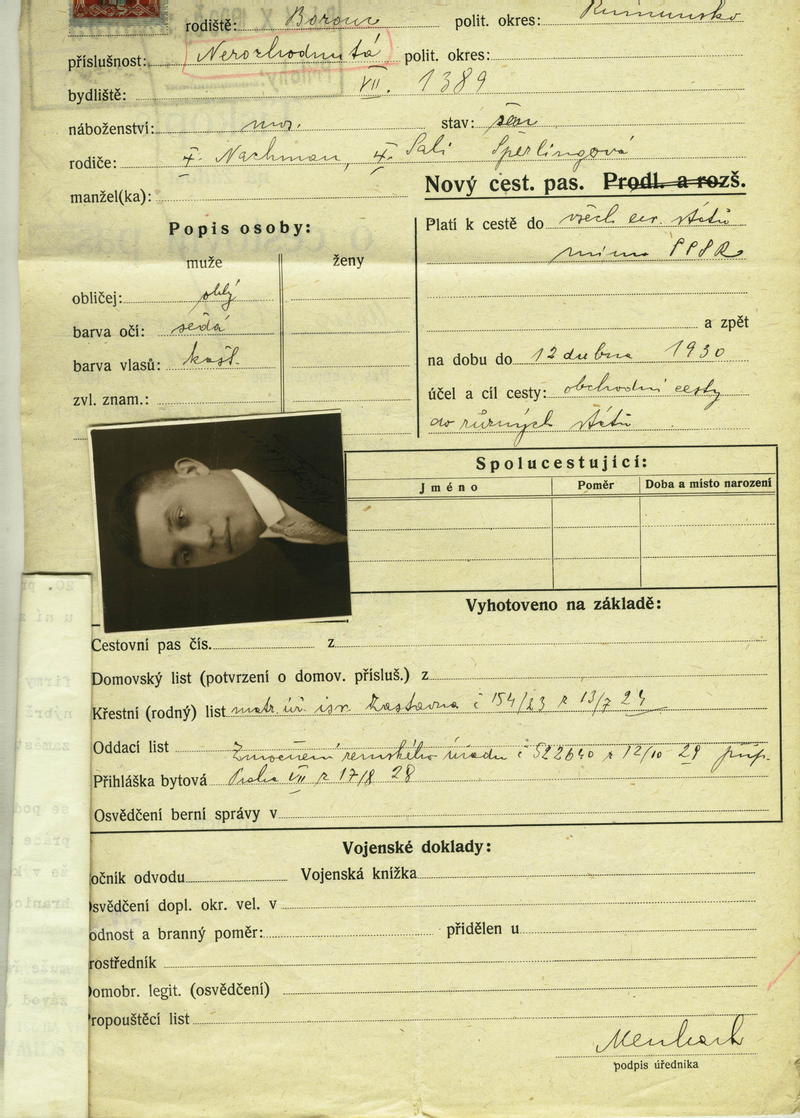 rodiště: polit. okres: Rumunsko
příslušnost: Nerozhodnutá polit. okres:
bydliště: VII. 1389
náboženství: stav:
rodiče: Nachman, Sali Šperlingová
manžel(ka):
Nový cest. pas. Prodl. a rozš.
Popis osoby:
muže ženy
obličej:
barva očí: šedá
barva vlasů: kašt.
zvl. znam.:
Platí k cestě do všech eur. států
mimo SSSR
a zpět
na dobu do 12 dubna 1930
účel a cíl cesty: obchodní cesty
do různých států
Spolucestující:
Jméno Poměr Doba a místo narození
Vyhotoveno na základě:
Cestovní pas čís. z
Domovský list (potvrzení o domov. přísluš.) z
Křestní (rodný) list matr. úř. isr. č 154/23 z 13/7 24
Oddací list
Zmocnění zemského úřadu č 522640 z 12/10 29
Přihláška bytová Praha VII z 17/8 28
Osvědčení berní správy v
Vojenské doklady:
očník odvodu Vojenská knížka
svědčení dopl. okr. vel. v
odnost a branný poměr: přidělen u
rostředník
omobr. legit. (osvědčení)
ropouštěcí list
podpis úředníka